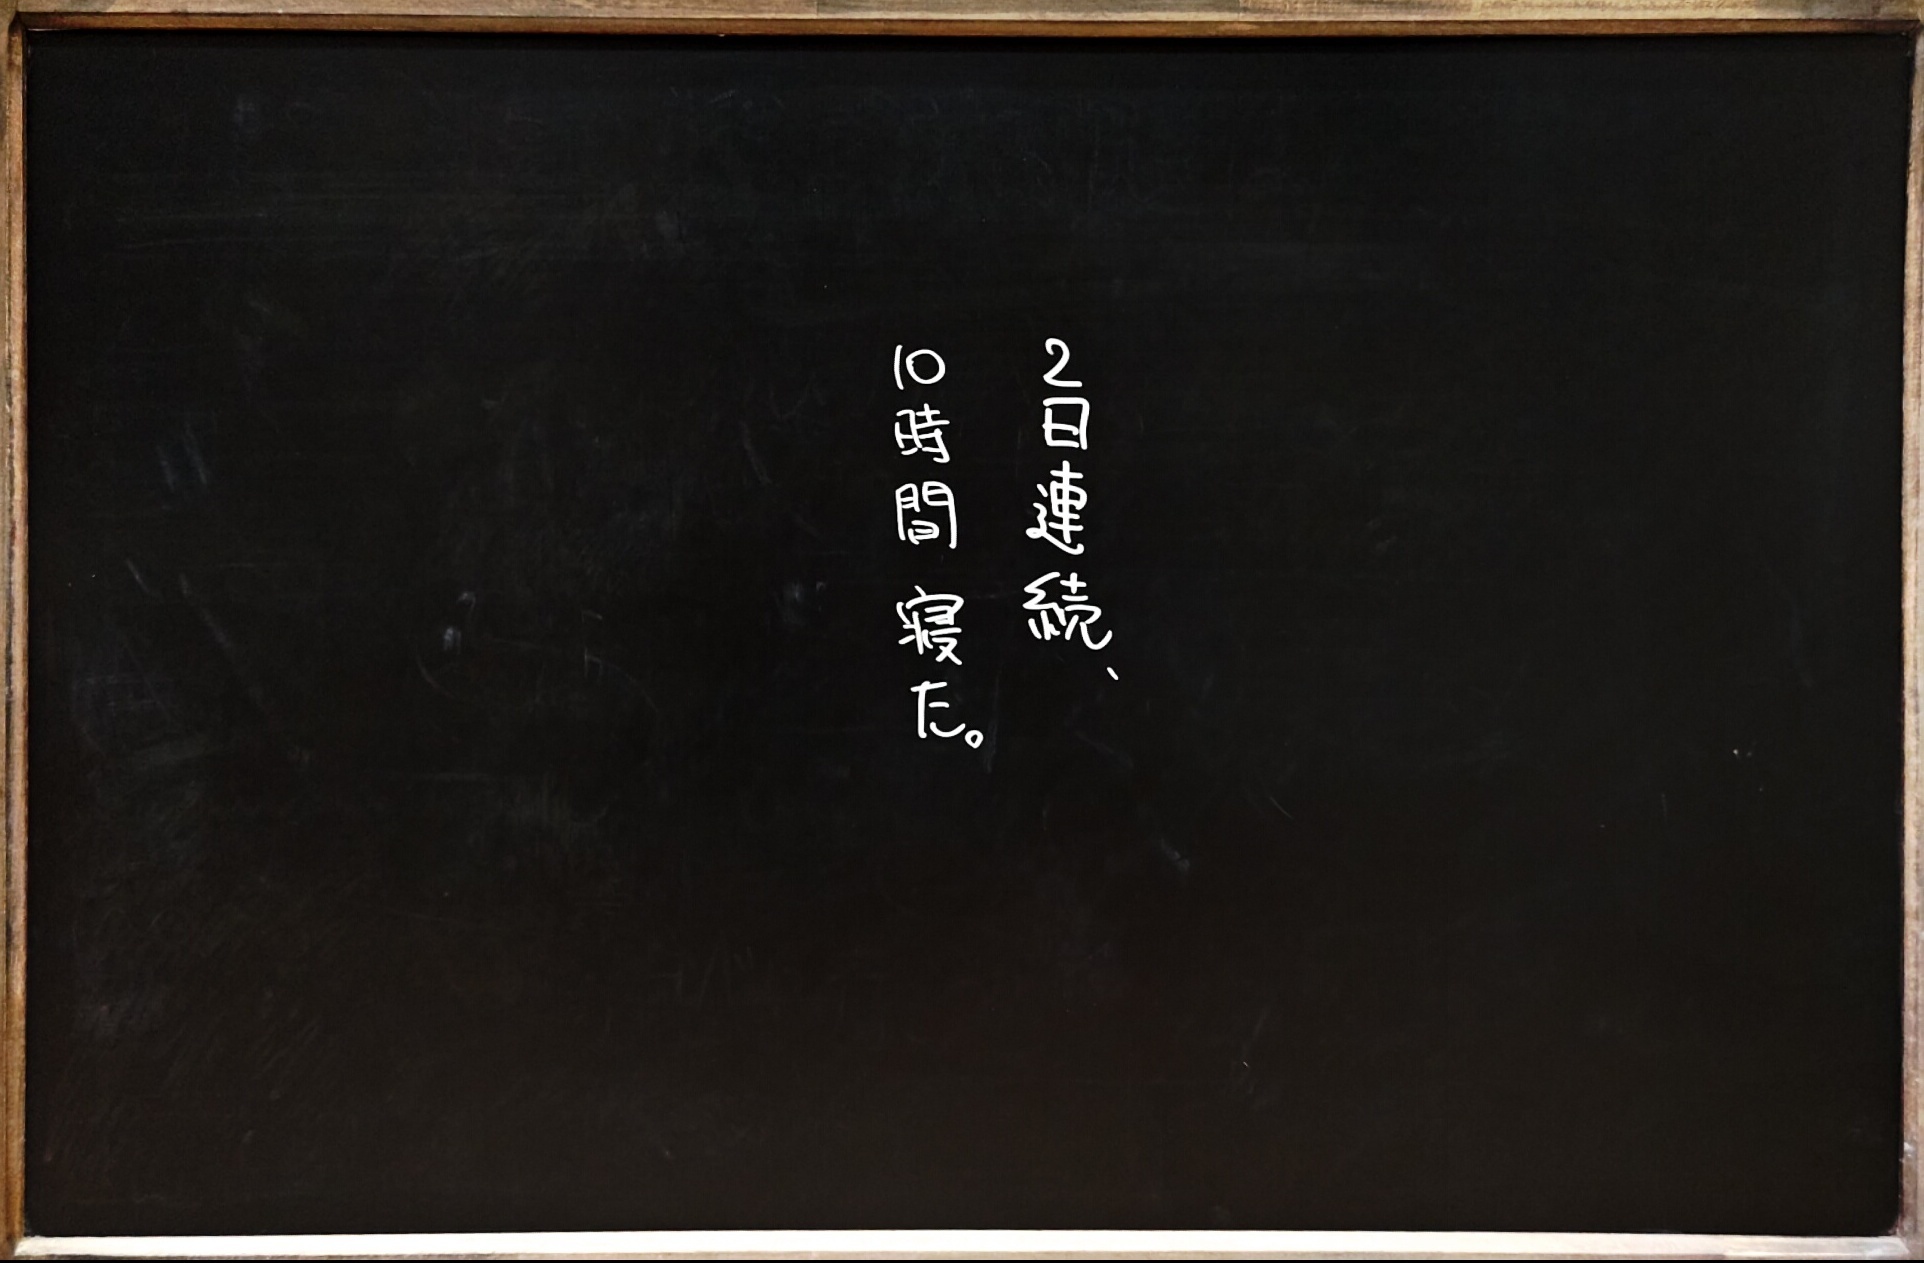 2日連続、
10時間寝た。